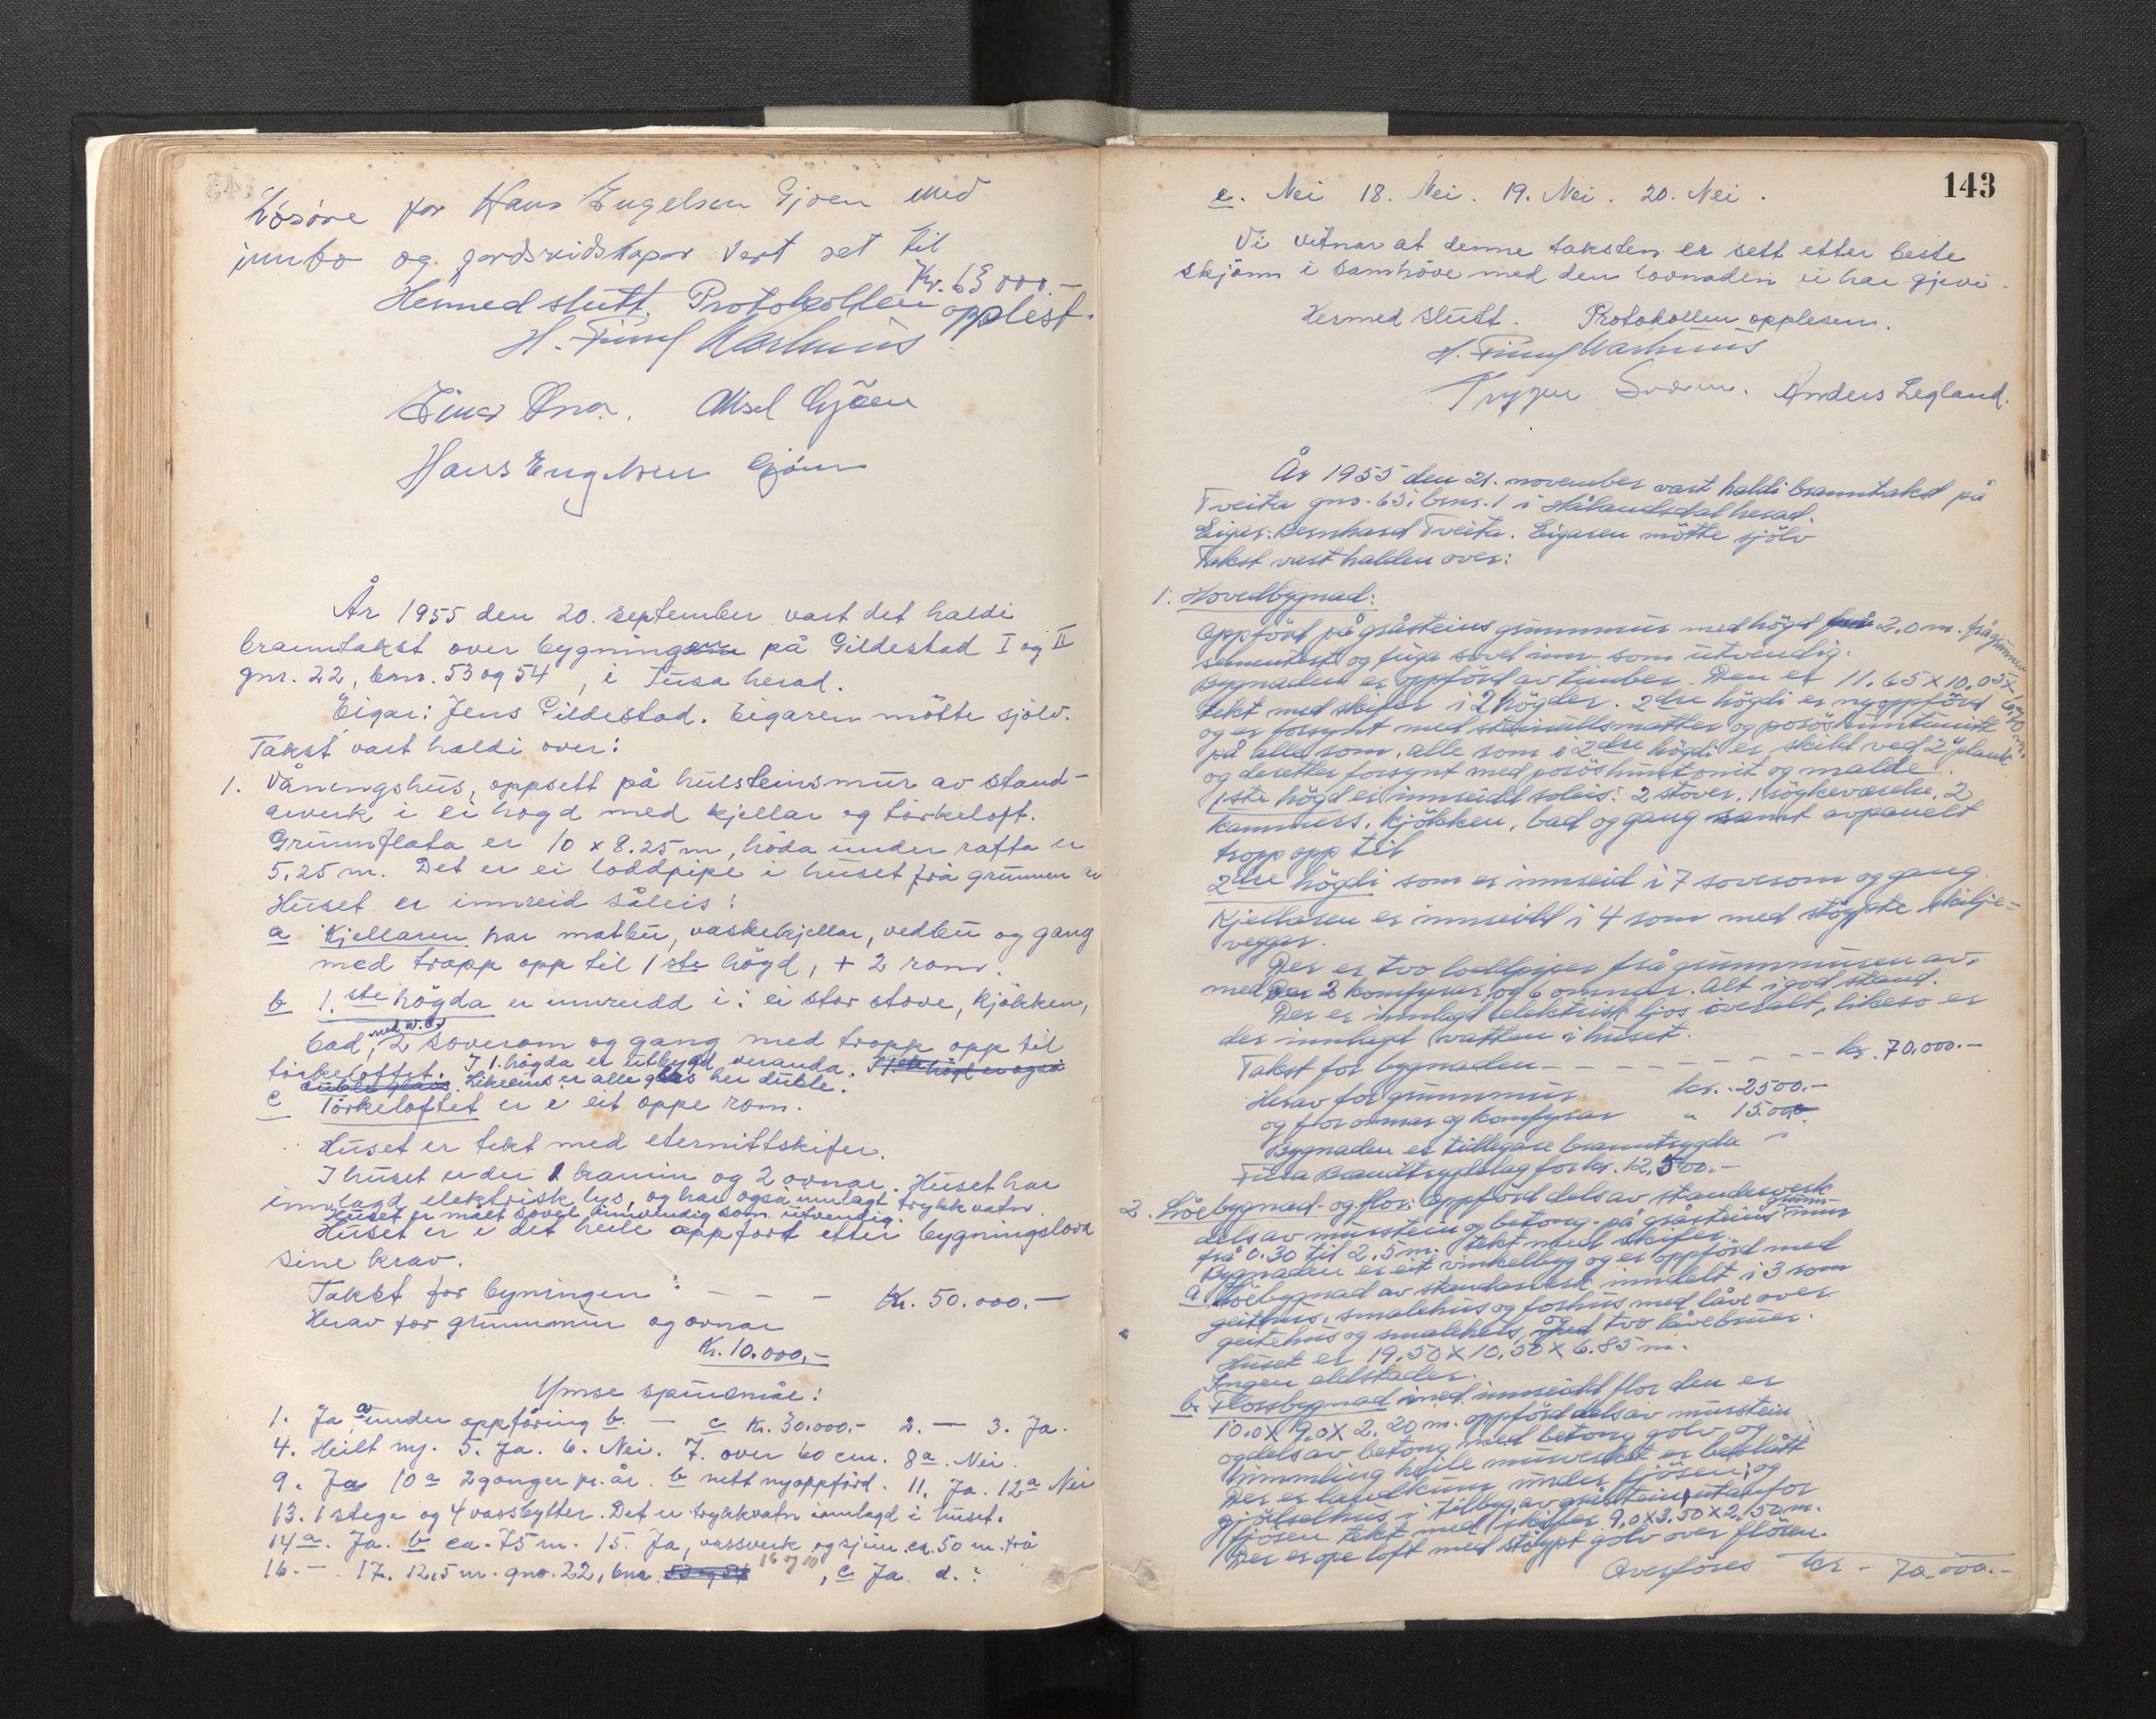 Lösöre for Hans Engelsen Gjöen med
innbo og gardsreidskapar vert set til
Kr. 63 000.-
Hermed slutt. Protokollen opplest.
Einar Aksel Gjöen
Hans Engelsen Gjöen
År 1955 den 20. september vart det haldi
branntakst over bygningen på Gildestad I og II
gnr. 22, bnr. 53 og 54, i Fusa herad.
Eigar: Jens Gildestad. Eigaren mötte sjölv.
Takst vart haldi over:
1. Våningshus, oppsett på hulsteinsmur av stand-
arverk i ei högd med kjellar og törkeloft.
Grunnflata er 10 x 8.25 m, höda under rafta er
5.25 m. Det er ei loddpipe i huset frå grunnen av
Huset er innreid såleis:
a Kjellaren har matbu, vaskekjellar, vedbu og gang
med tropp opp til 1ste högd, + 2 rom.
b 1.ste högda er innreidd i: ei stor stove, kjökken,
bad, med w.c. 2 soverom og gang med tropp opp til
törkeloftet. I 1. högda er utbygd veranda. I 1ste högd er også
duble glass. Likeeins er alle glas her duble.
c Törkeloftet er e eit oppe rom.
Huset er tekt med eternittskifer.
I huset er der 1 kamin og 2 ovnar. Huset har
innlagd elektrisk lys, og har også innlagt trykkvatn.
Huset er målt sovel innvendig som utvendig.
Huset er i det heile oppfört etter bygningslova
sine krav.
Takst for byningen: - - - Kr. 50.000.-
Herav for grunnmur og ovnar
Kr. 10.000,-
Ymse spursmål:
1. Ja, a under oppföring b. - c Kr. 30.000.- 2. - 3. Ja.
4. Heilt ny. 5. Ja. 6. Nei. 7. over 60 cm. 8a. Nei.
9. Ja 10a 2 ganger pr. år. b nett nyoppförd. 11. Ja. 12a Nei
13. 1 stege og 4 vassbytter. Det er trykkvatn innlagd i huset.
14a. Ja. b ca. 75 m. 15. Ja, vassverk og sjön ca. 50 m. frå
16. - . 17. 12,5 m. gnr. 22, bnr. 53 og 54 16 7 10, c Ja d. ?
143
e. Nei 18. Nei. 19. Nei. 20. Nei.
Vi vitnar at denne taksten er sett etter beste
skjönn i samhöve med den lovnaden vi har gjevi.
Hermed slutt. Protokollen opplesen.
Anders Legland.
År 1955 den 21. november vart haldi branntakst på
Tveita gnr. 65, brnr. 1 i Hålandsdal herad.
Eigar: Bernhard Tveita. Eigaren mötte sjölv
Takst vart halden over:
1. Hovedbygnad:
Oppförd på gråsteins grunnmur med högd frå 2.0 m. frå grunnen
sementert og fuga sovel inn- som utvendig.
Bygnaden er oppförd av timber. Den er 11.65 x 10.05 x 6,70 m.
tekt med skifer i 2 högder. 2dre högdi er nyoppförd
og er forsynt med steinullsmatter og porös huntunitt
på alle rom. Alle rom i 2dre högdi er skild ved 2" plank
og deretter forsynt med porös huntonit og malde.
1ste högd er innreidd soleis: 2 stover, 1 rögkeværelse, 2
kammers, kjökken, bad og gang samt avpanelt
tropp opp til
2dre högdi som er innreid i 7 soverom og gang.
Kjellaren er innreidd i 4 rom med stöypte skilje-
vegger.
Der er tvo loddpiper frå grunnmuren av,
med Der 2 komfyrar og 6 omnar. Alt i god stand.
Der er innlagd elektrisk ljos överalt, likeso er
der innlagt vatten i huset.
Takst for bygnaden - - - - - - - - kr. 70.000.-
Herav for grunnmur kr. 2500.-
og for omnar og komfyrar " 1500.-
Bygnaden er tidlegare branntrygda i
Fusa Brandtrygdelag for kr. 12,500.-
2. Löebygnad- og flor: Oppförd dels av standerverk
dels av murstein og betong- på gråsteins grunn- mur
frå 0.30 til 2.5 m. Tekt med skifer.
Bygnaden er eit vinkelbygg og er oppförd med
a Löebygnad av standerverk inndelt i 3 rom
geithus, smalehus og forhus med låve over
geitehus og smalehus, med og tvo låvebruer.
Huset er 19.50 x 10.50 x 6.85 m.
Ingen eldstader.
b. Florsbygnad med innreidd flor den er
10.0 x 9.0 x 2.20 m. oppförd dels av murstein
og dels av betong med betong golv og
himmling heile murverket er beslått
Der er landkum under fjösen; og
gjödselhus i tilbyg av gråstein utanfor
fjösen tekt med skifer 9.0 x 3.50 x 2.50 m.
Der er ope loft med stöypt golv over flören.
Overföres kr - 70.000.-